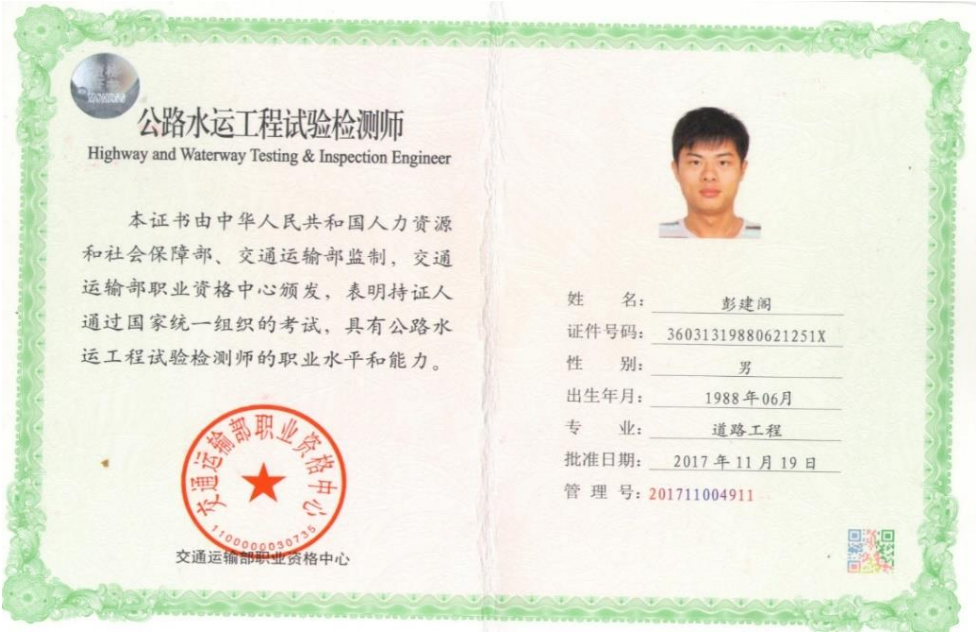 公路水运工程试验检测师
Highway and Waterway Testing & Inspection Engineer
本证书由中华人民共和国人力资源
和社会保障部、交通运输部监制，交通
运输部职业资格中心颁发，表明持证人
通过国家统一组织的考试，具有公路水
运工程试验检测师的职业水平和能力。
交通运输部职业资格中心
1100000030735
交通运输部职业资格中心
姓 名：彭建阁
证件号码：36031319880621251X
性 别：男
出生年月：1988年06月
专 业：道路工程
批准日期：2017年11月19日
管 理 号：201711004911